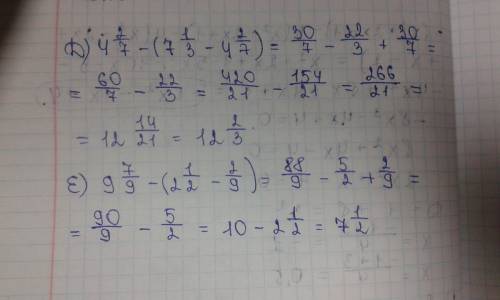 Д) 4 2/7 − (7 1/3 − 4 2/7) = 30/7 − 22/3 + 30/7 =
= 60/7 − 22/3 = 420/21 − 154/21 = 266/21 =
= 12 14/21 = 12 2/3.
Е) 9 7/9 − (2 1/2 − 2/9) = 88/9 − 5/2 + 2/9 =
= 90/9 − 5/2 = 10 − 2 1/2 = 7 1/2